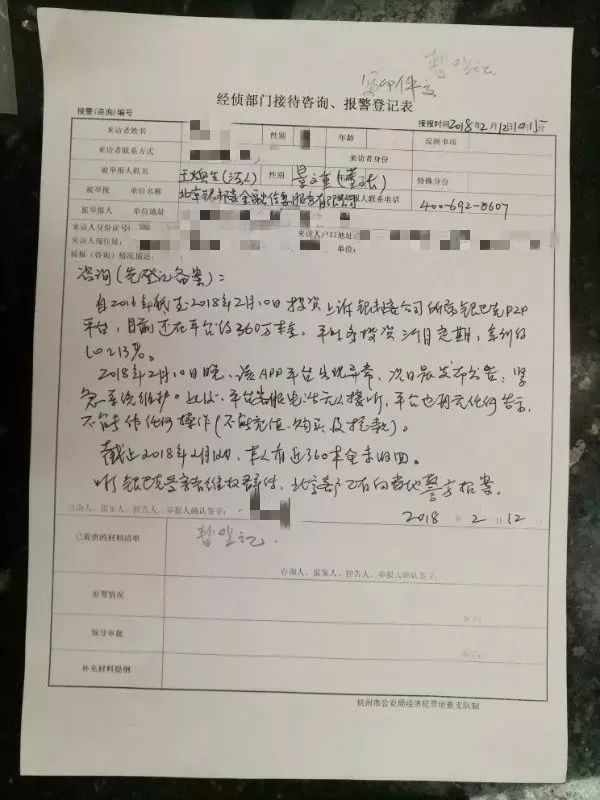 暂登记
复印件
经侦部门接待咨询、报警登记表
接警(咨询)编号 接报时间2018年2月12日10时15分
来访者姓名 性别 年龄 反映事项
来访者联系方式 来访者身份
被举报人姓名 (法人) 性别 景文重(董事长) 特殊身份
被举报 单位名称 北京 金融信息服务有限公司 被举报人联系电话 400-692-0607
被举报人 单位地址
来访人身份证号 来访人户口地址:
来访人现住址: 单位:
接报(咨询)情况描述:
咨询(先登记备案):
自2016年底至2018年2月10日投资上述 公司 P2P
平台,目前还在平台约360万本金。平时多投资3个月定期,年利约
10-13%。
2018年2月10日晚,该APP平台出现异常,次日晨发布公告,紧
急系统维护。此后,平台客服电话无人接听,平台也再无任何告示,
不能作任何操作(不能充值、购买及提款)。
截止2018年2月12日,本人有近360本金未收回。
维权群体,北京客户已有向当地警方报案。
咨询人、报案人、控告人、举报人确认签字:
2018年2月12
已提供的材料清单 暂登记
咨询人、报案人、控告人、举报人确认签字:
处置情况
签字:
领导审批
签字:
补充材料提纲
杭州市公安局经济犯罪侦查支队制